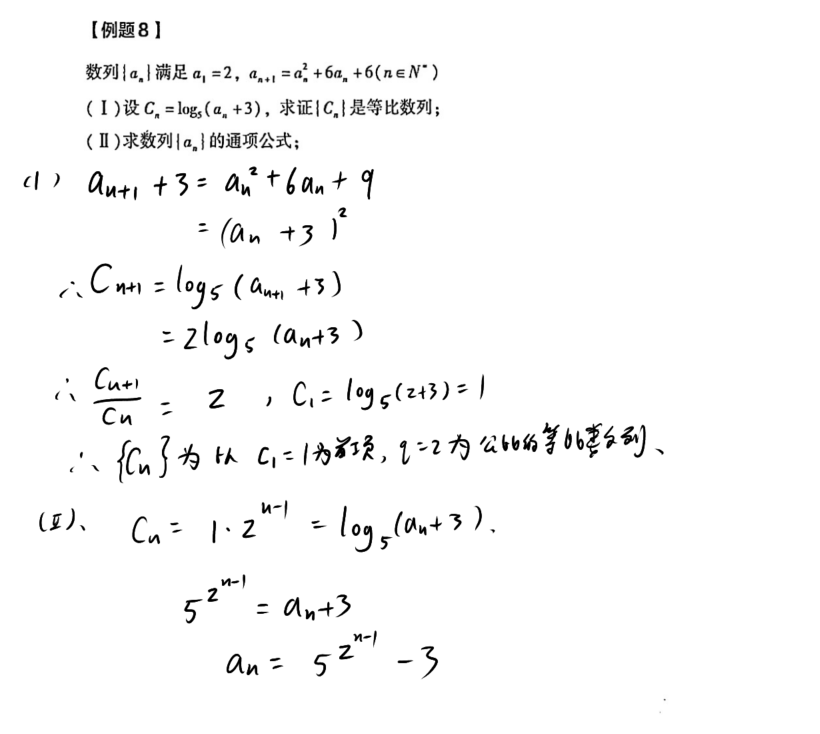 【例题8】
数列{aₙ}满足a₁=2，aₙ₊₁=aₙ²+6aₙ+6(n∈N*)
(Ⅰ)设Cₙ=log₅(aₙ+3)，求证{Cₙ}是等比数列；
(Ⅱ)求数列{aₙ}的通项公式；
(1) aₙ₊₁+3=aₙ²+6aₙ+9
=(aₙ+3)²
∴Cₙ₊₁=log₅(aₙ₊₁+3)
=2log₅(aₙ+3)
∴Cₙ₊₁/Cₙ=2，C₁=log₅(2+3)=1
∴{Cₙ}为以C₁=1为首项，q=2为公比的等比数列、
(Ⅱ)、Cₙ=1·2^(n-1)=log₅(aₙ+3).
5^(2^(n-1))=aₙ+3
aₙ=5^(2^(n-1))-3